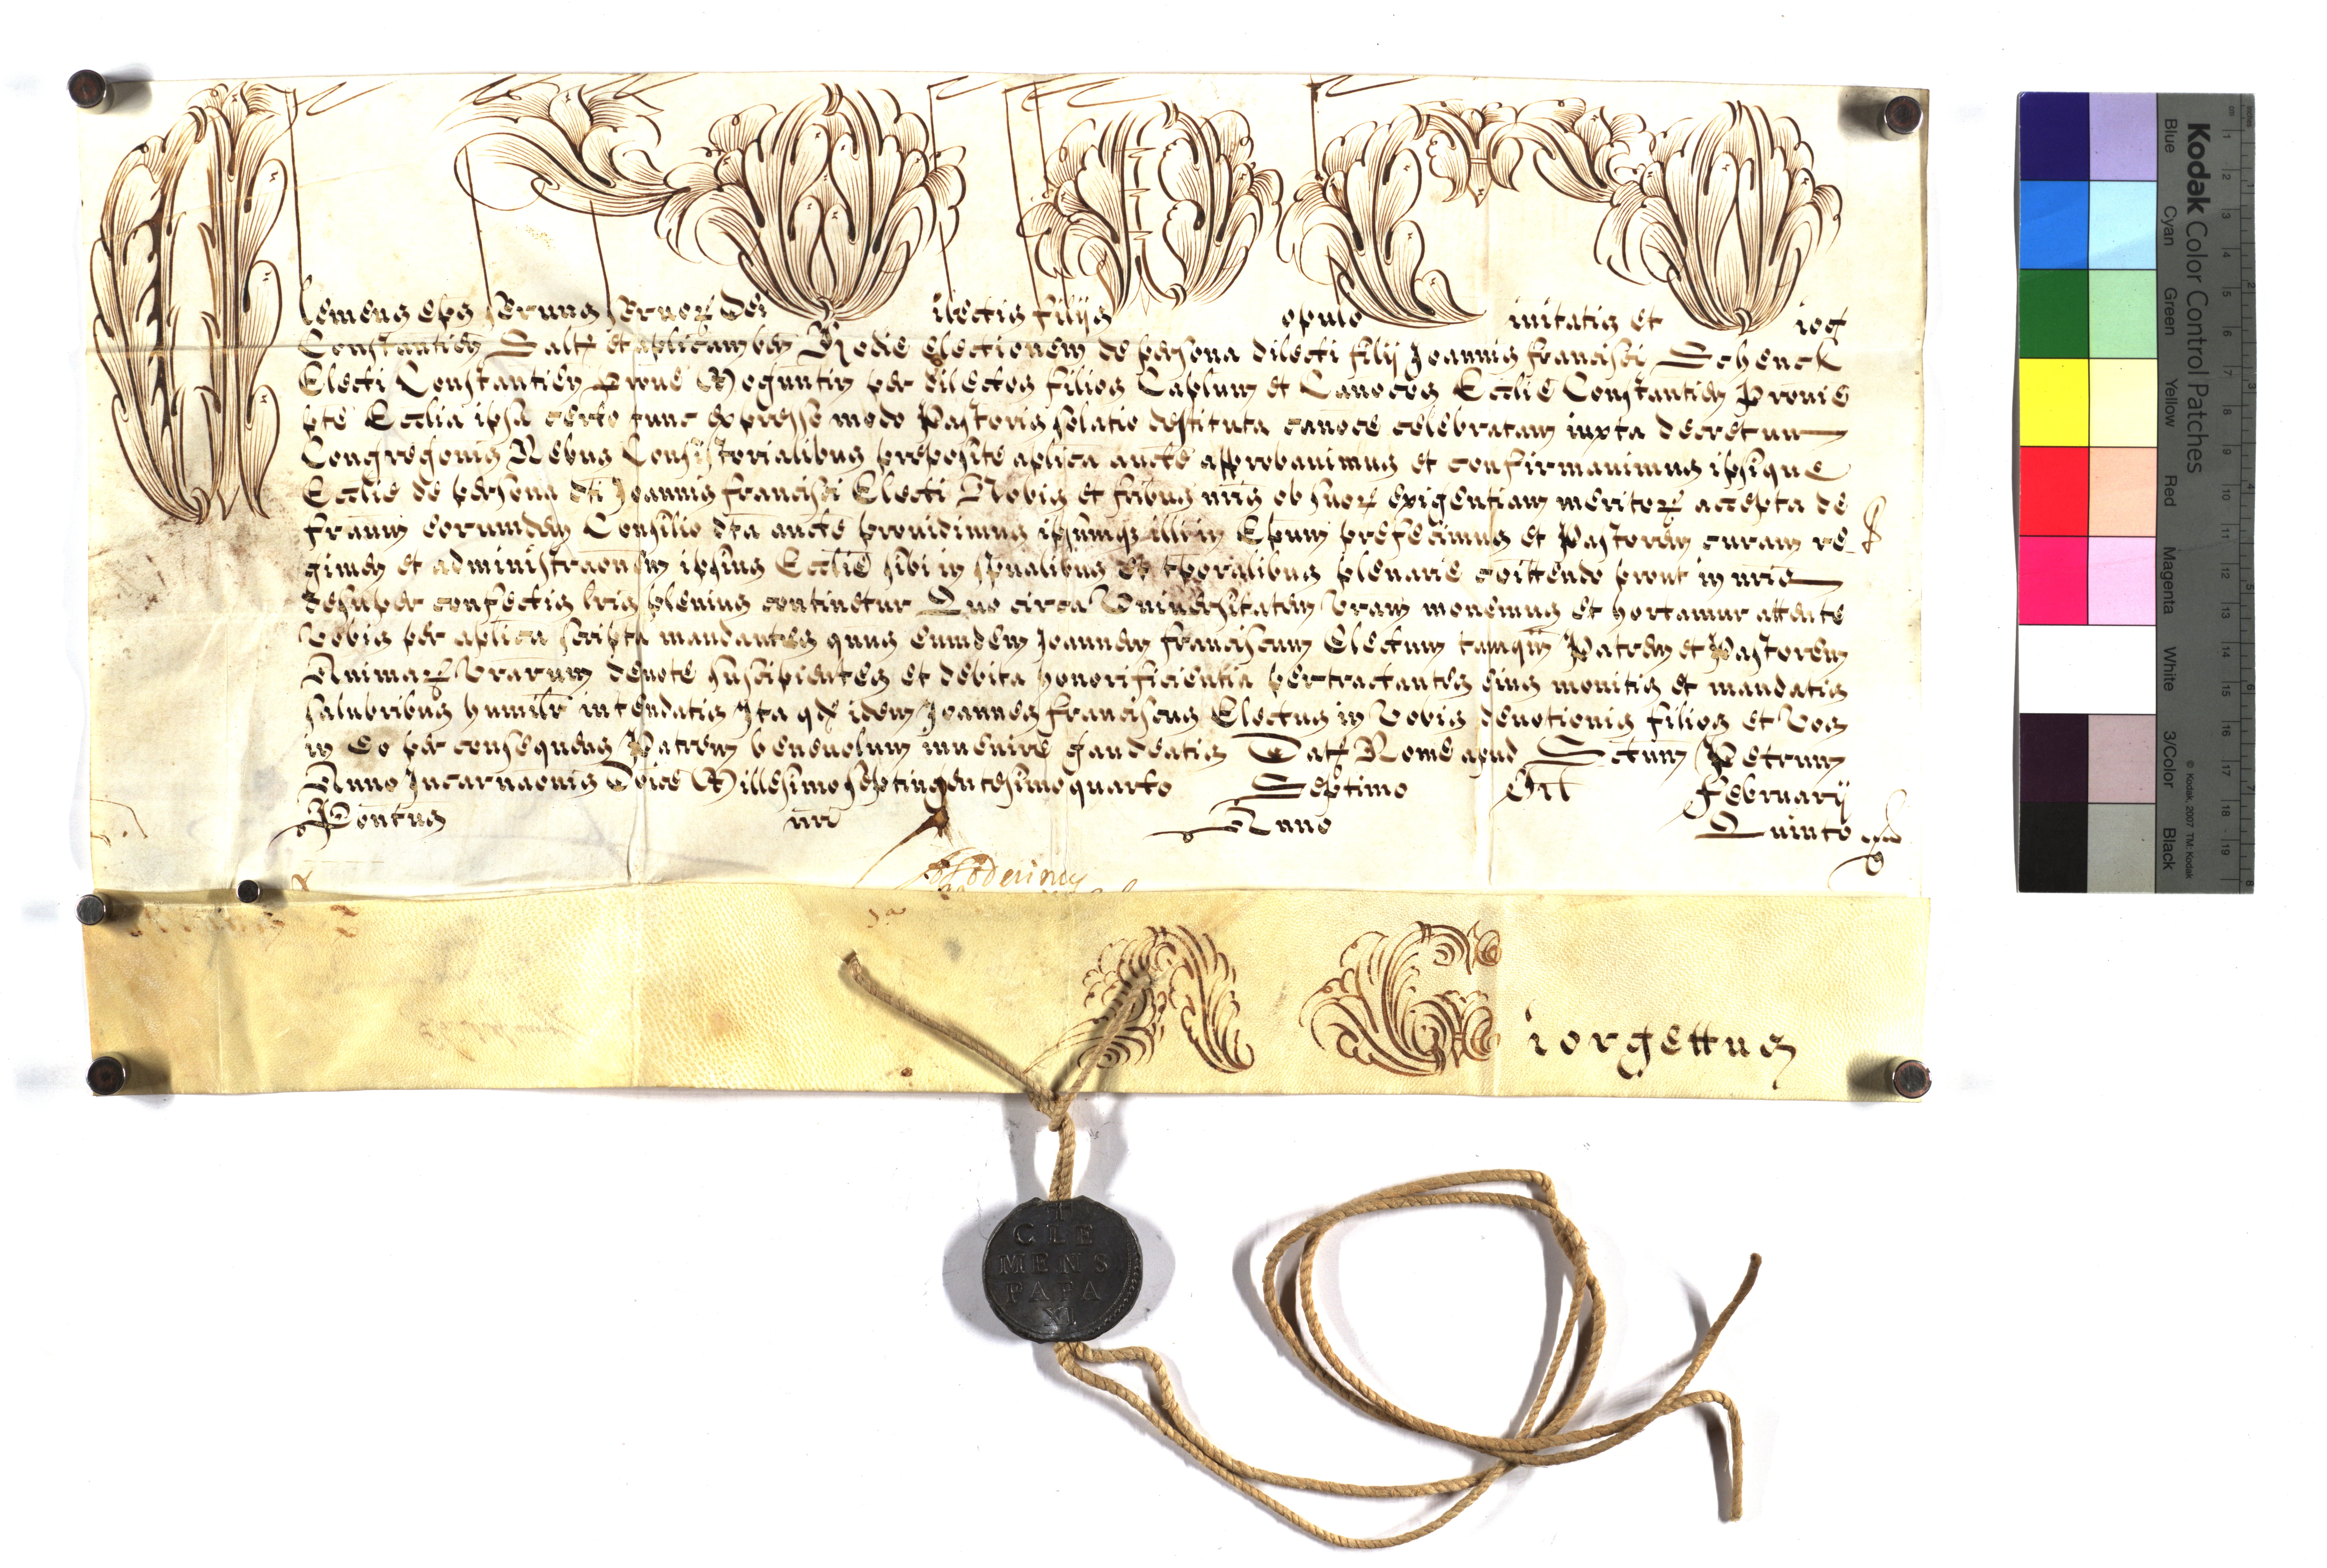 Clemens eps Servus Servor Dei Dilectis filijs Populo Civitatis et Dioc
Constantien Saltm et aplicam ben Hodie electionem de persona dilecti filij Joannis francisci Schenck
Electi Constantien Provie Moguntin per dilectos filios Caplum et Canocos Ecclie Constantien Provie
pte Ecclia ipsa certo tunc expresso modo Pastoris solatio destituta canoce celebratam iuxta decretum
Congregonis Rebus Consistorialibus preposite aplica aucte approbavimus et confirmavimus ipsique
Ecclie de persona dti Joannis francisci Electi Nobis et fribus nris ob suor exigentiam meritor accepta de
fratrum eorumdem Consilio dta aucte providimus ipsumq illi in Epum prefecimus et Pastorem curam re
gimen et administraonem ipsius Ecclie sibi in spualibus et tporalibus plenarie coittendo prout in nris
desuper confectis lris plenius continetur Quo circa Universitatem Vram monemus et hortamur attente
Vobis per aplica scripta mandantes quus eumdem Joannem franciscum Electum tamqm Patrem et Pastorem
Animar Vrarum devote suscipientes et debita honorificientia pertractantes eius monitis et mandatis
salubribus humilr intendatis Ita qd idem Joannes franciscus Electus in Vobis devotionis filios et Vos
in eo per consequens Patrem benevolum invenire gaudeatis Datm Rome apud Sctum Petrum
Anno Incarnaonis Dnice Millesimoseptingentesimoquarto Septimo Cal February
Pontus nri Anno Quinto
A Giorgettus
CLE
MENS
PAPA
XI
Kodak Color Control Patches
Blue Cyan Green Yellow Red Magenta White 3/Color Black
© Kodak, 2007 TM: Kodak
cm 1 2 3 4 5 6 7 8 9 10 11 12 13 14 15 16 17 18 19
inches 1 2 3 4 5 6 7 8